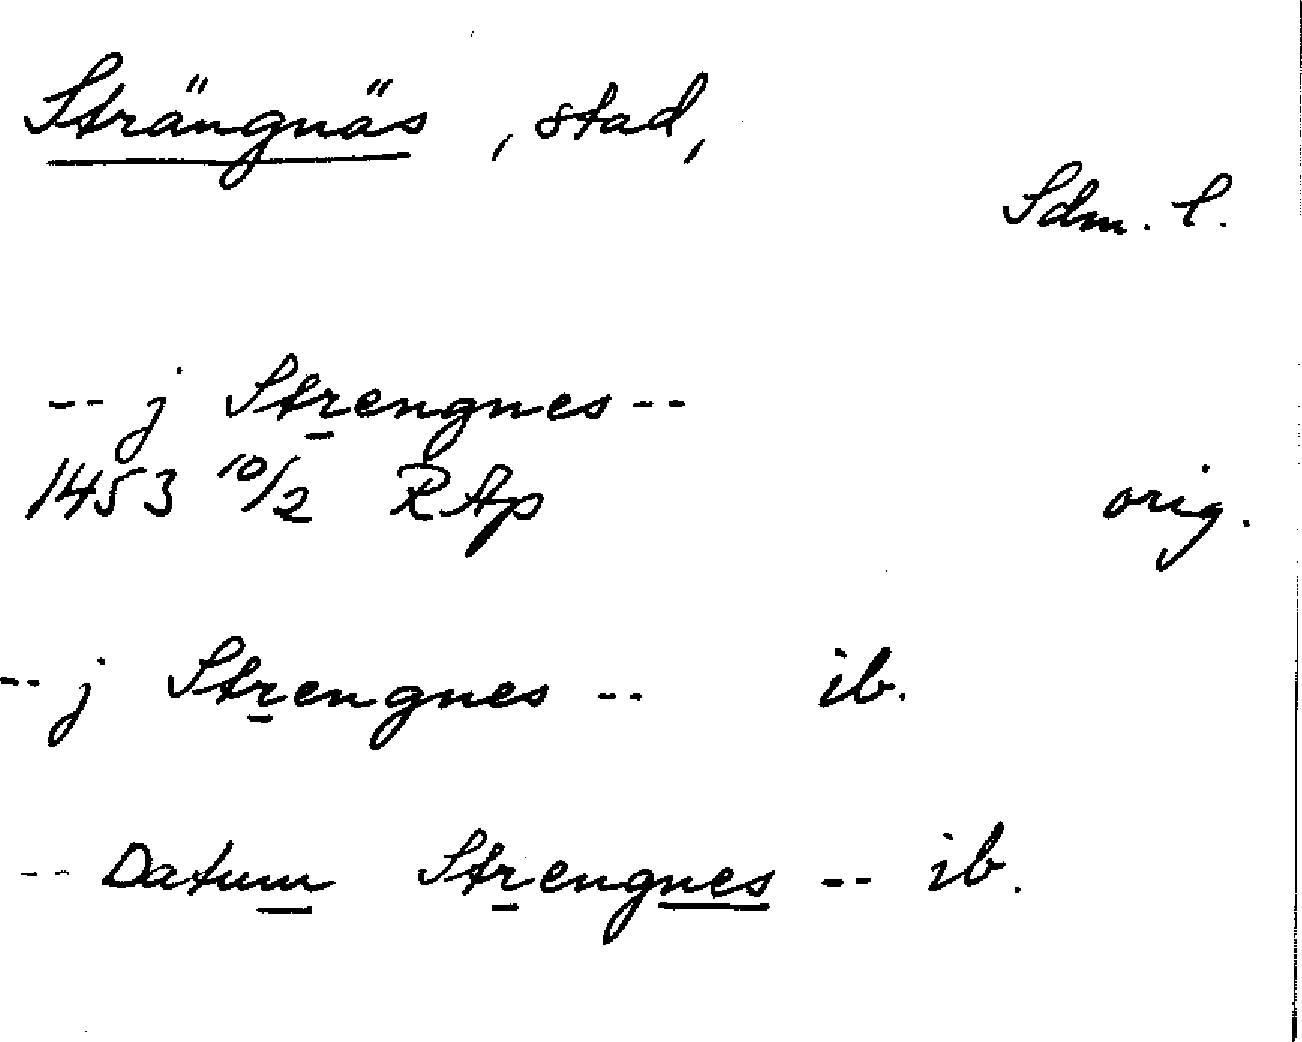 Strängnäs, stad,
Sdm. l.
-- j Strengnes --
1453 10/2 RAp orig.
-- j Strengnes -- ib.
-- Datum Strengnes -- ib.